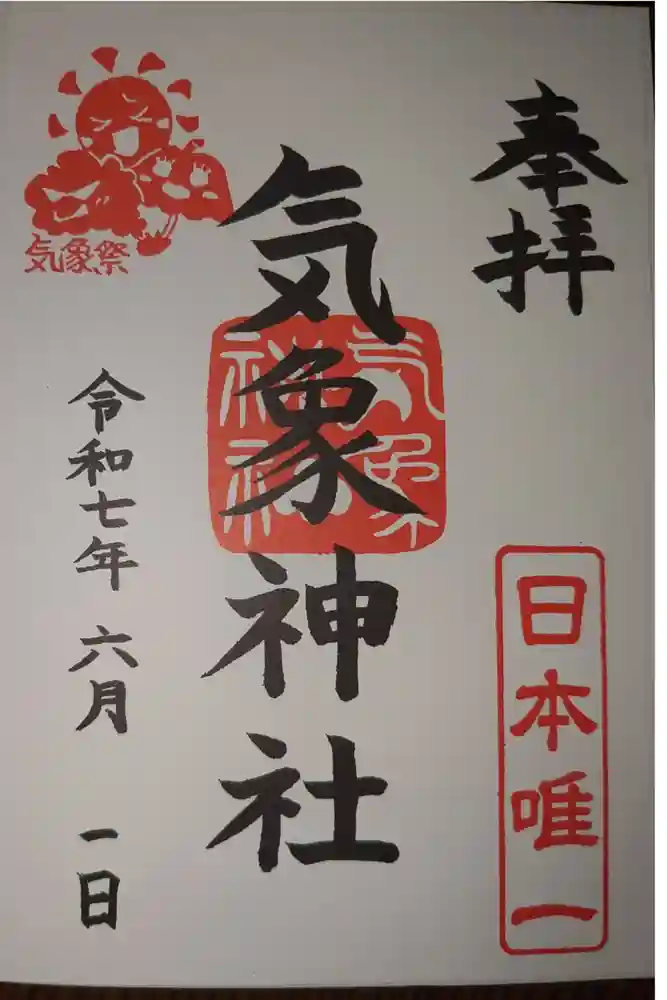 奉拝
日本唯一
気象神社
気象神社
気象祭
令和七年 六月 一日